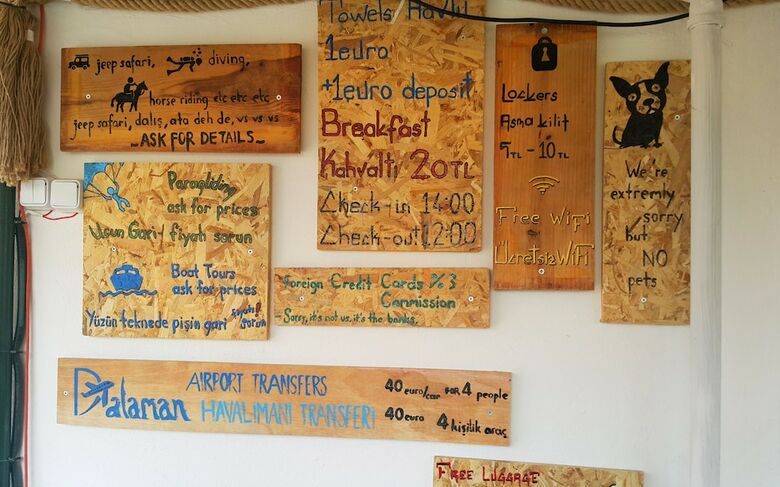 jeep safari, diving,
horse riding etc etc etc
jeep safari, dalış, ata deh de, vs vs vs
_ASK FOR DETAILS_
Towels Havlu
1euro
+1euro deposit
Breakfast
Kahvaltı 20TL
Check-in 14:00
Check-out 12:00
Lockers
Asma kilit
5TL - 10TL
Free WiFi
Ücretsiz WiFi
We're
extremly
sorry
but
NO
pets
Paragliding
ask for prices
Uçun Gari - fiyatı sorun
Boat Tours
ask for prices
Yüzün teknede pişin gari fiyatı sorun!
Foreign Credit Cards % 3
Commission
- Sorry, it's not us, it's the banks.
Dalaman AIRPORT TRANSFERS 40 euro/car FOR 4 people
HAVALİMANI TRANSFERİ 40 euro 4 kişilik araç
FREE LUGGAGE